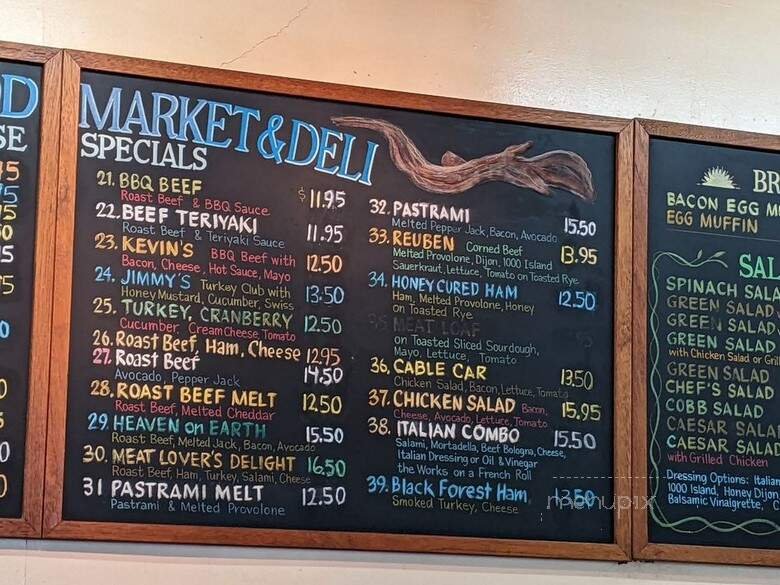 D
SE
MARKET & DELI
SPECIALS
21. BBQ BEEF $11.95
Roast Beef & BBQ Sauce
22. BEEF TERIYAKI 11.95
Roast Beef & Teriyaki Sauce
23. KEVIN'S BBQ Beef with 12.50
Bacon, Cheese, Hot Sauce, Mayo
24. JIMMY'S Turkey Club with 13.50
Honey Mustard, Cucumber, Swiss
25. TURKEY, CRANBERRY 12.50
Cucumber, Cream Cheese, Tomato
26. Roast Beef, Ham, Cheese 12.95
27. Roast Beef 14.50
Avocado, Pepper Jack
28. ROAST BEEF MELT 12.50
Roast Beef, Melted Cheddar
29. HEAVEN on EARTH 15.50
Roast Beef, Melted Jack, Bacon, Avocado
30. MEAT LOVER'S DELIGHT 16.50
Roast Beef, Ham, Turkey, Salami, Cheese
31 PASTRAMI MELT 12.50
Pastrami & Melted Provolone
32. PASTRAMI 15.50
Melted Pepper Jack, Bacon, Avocado
33. REUBEN Corned Beef 13.95
Melted Provolone, Dijon, 1000 Island
Sauerkraut, Lettuce, Tomato on Toasted Rye
34. HONEY CURED HAM 12.50
Ham, Melted Provolone, Honey
on Toasted Rye
35 MEAT LOAF
on Toasted Sliced Sourdough,
Mayo, Lettuce, Tomato
36. CABLE CAR 13.50
Chicken Salad, Bacon, Lettuce, Tomato
37. CHICKEN SALAD Bacon, 15.95
Cheese, Avocado, Lettuce, Tomato
38. ITALIAN COMBO 15.50
Salami, Mortadella, Beef Bologna, Cheese,
Italian Dressing or Oil & Vinegar
the Works on a French Roll
39. Black Forest Ham, 13.50
Smoked Turkey, Cheese
menupix
BR
BACON EGG M
EGG MUFFIN
SAL
SPINACH SALA
GREEN SALAD
GREEN SALAD
GREEN SALAD
with Chicken Salad or Gril
GREEN SALAD
CHEF'S SALAD
COBB SALAD
CAESAR SALAD
CAESAR SALAD
with Grilled Chicken
Dressing Options: Italian
1000 Island, Honey Dijon
Balsamic Vinaigrette,